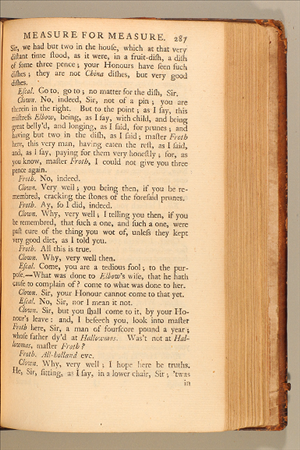 MEASURE FOR MEASURE. 287
Sir, we had but two in the house, which at that very
distant time stood, as it were, in a fruit-dish, a dish
of some three pence; your Honours have seen such
dishes; they are not China dishes, but very good
dishes.
Escal. Go to, go to; no matter for the dish, Sir.
Clown. No, indeed, Sir, not of a pin; you are
therein in the right. But to the point; as I say, this
mistress Elbow, being, as I say, with child, and being
great belly'd, and longing, as I said, for prunes; and
having but two in the dish, as I said; master Froth
here, this very man, having eaten the rest, as I said,
and, as I say, paying for them very honestly; for, as
you know, master Froth, I could not give you three
pence again.
Froth. No, indeed.
Clown. Very well; you being then, if you be re-
membred, cracking the stones of the foresaid prunes.
Froth. Ay, so I did, indeed.
Clown. Why, very well; I telling you then, if you
be remembred, that such a one, and such a one, were
past cure of the thing you wot of, unless they kept
very good diet, as I told you.
Froth. All this is true.
Clown. Why, very well then.
Escal. Come, you are a tedious fool; to the pur-
pose.—What was done to Elbow's wife, that he hath
cause to complain of? come to what was done to her.
Clown. Sir, your Honour cannot come to that yet.
Escal. No, Sir, nor I mean it not.
Clown. Sir, but you shall come to it, by your Ho-
nour's leave: and, I beseech you, look into master
Froth here, Sir, a man of fourscore pound a year;
whose father dy'd at Hallowmas. Was't not at Hal-
lowmas, master Froth?
Froth. All-holland eve.
Clown. Why, very well; I hope here be truths.
He, Sir, sitting, as I say, in a lower chair, Sir; 'twas
in